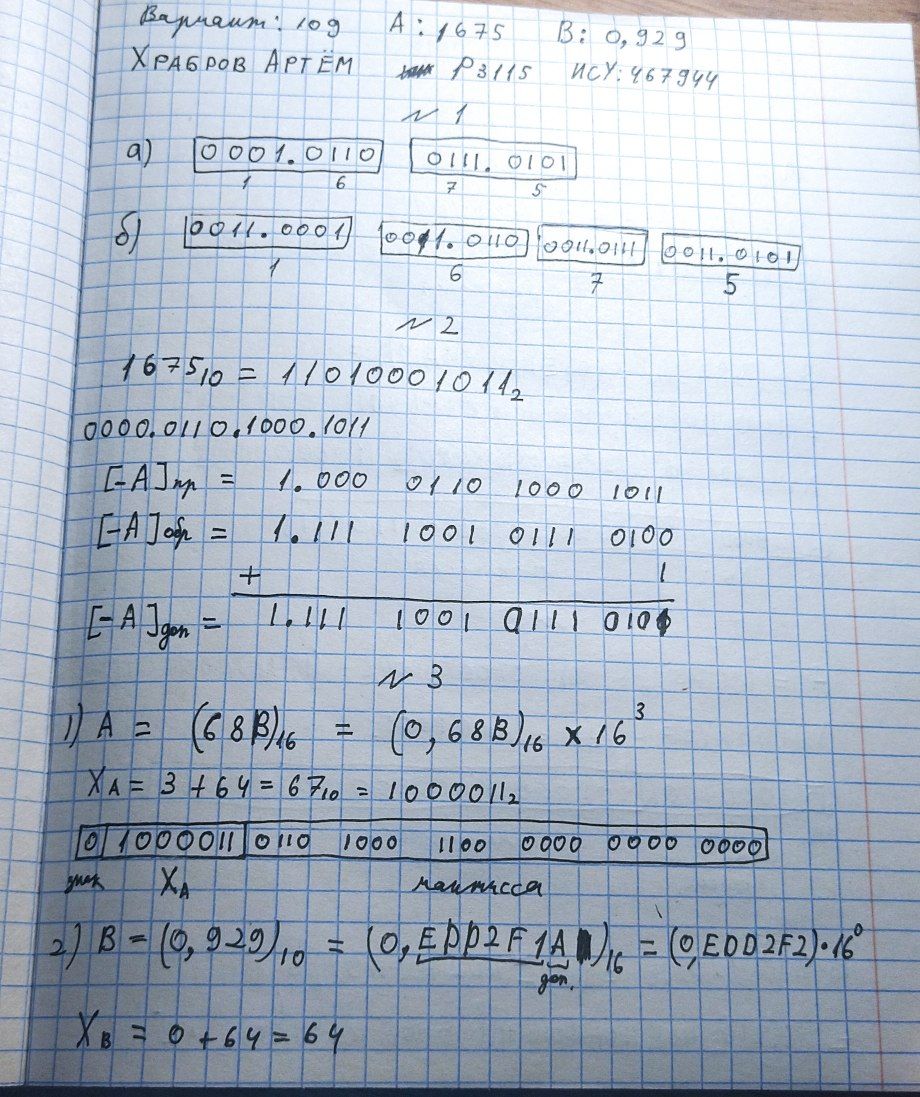 Вариант: 109 A: 1675 B: 0,929
ХРАБРОВ АРТЁМ P3115 ИСУ: 467944
№ 1
а) 0001.0110 0111.0101
1 6 7 5
б) 0011.0001 0011.0110 0011.0111 0011.0101
1 6 7 5
№ 2
1675₁₀ = 11010001011₂
0000.0110.1000.1011
[-A]пр = 1.000 0110 1000 1011
[-A]обр = 1.111 1001 0111 0100
+ 1
[-A]доп = 1.111 1001 0111 0101
№ 3
1) A = (68B)₁₆ = (0,68B)₁₆ × 16³
X_A = 3 + 64 = 67₁₀ = 1000011₂
0 1000011 0110 1000 1100 0000 0000 0000
знак X_A мантисса
2) B = (0,929)₁₀ = (0,EDD2F1A)₁₆ = (0,EDD2F2)·16⁰
доп.
X_B = 0 + 64 = 64